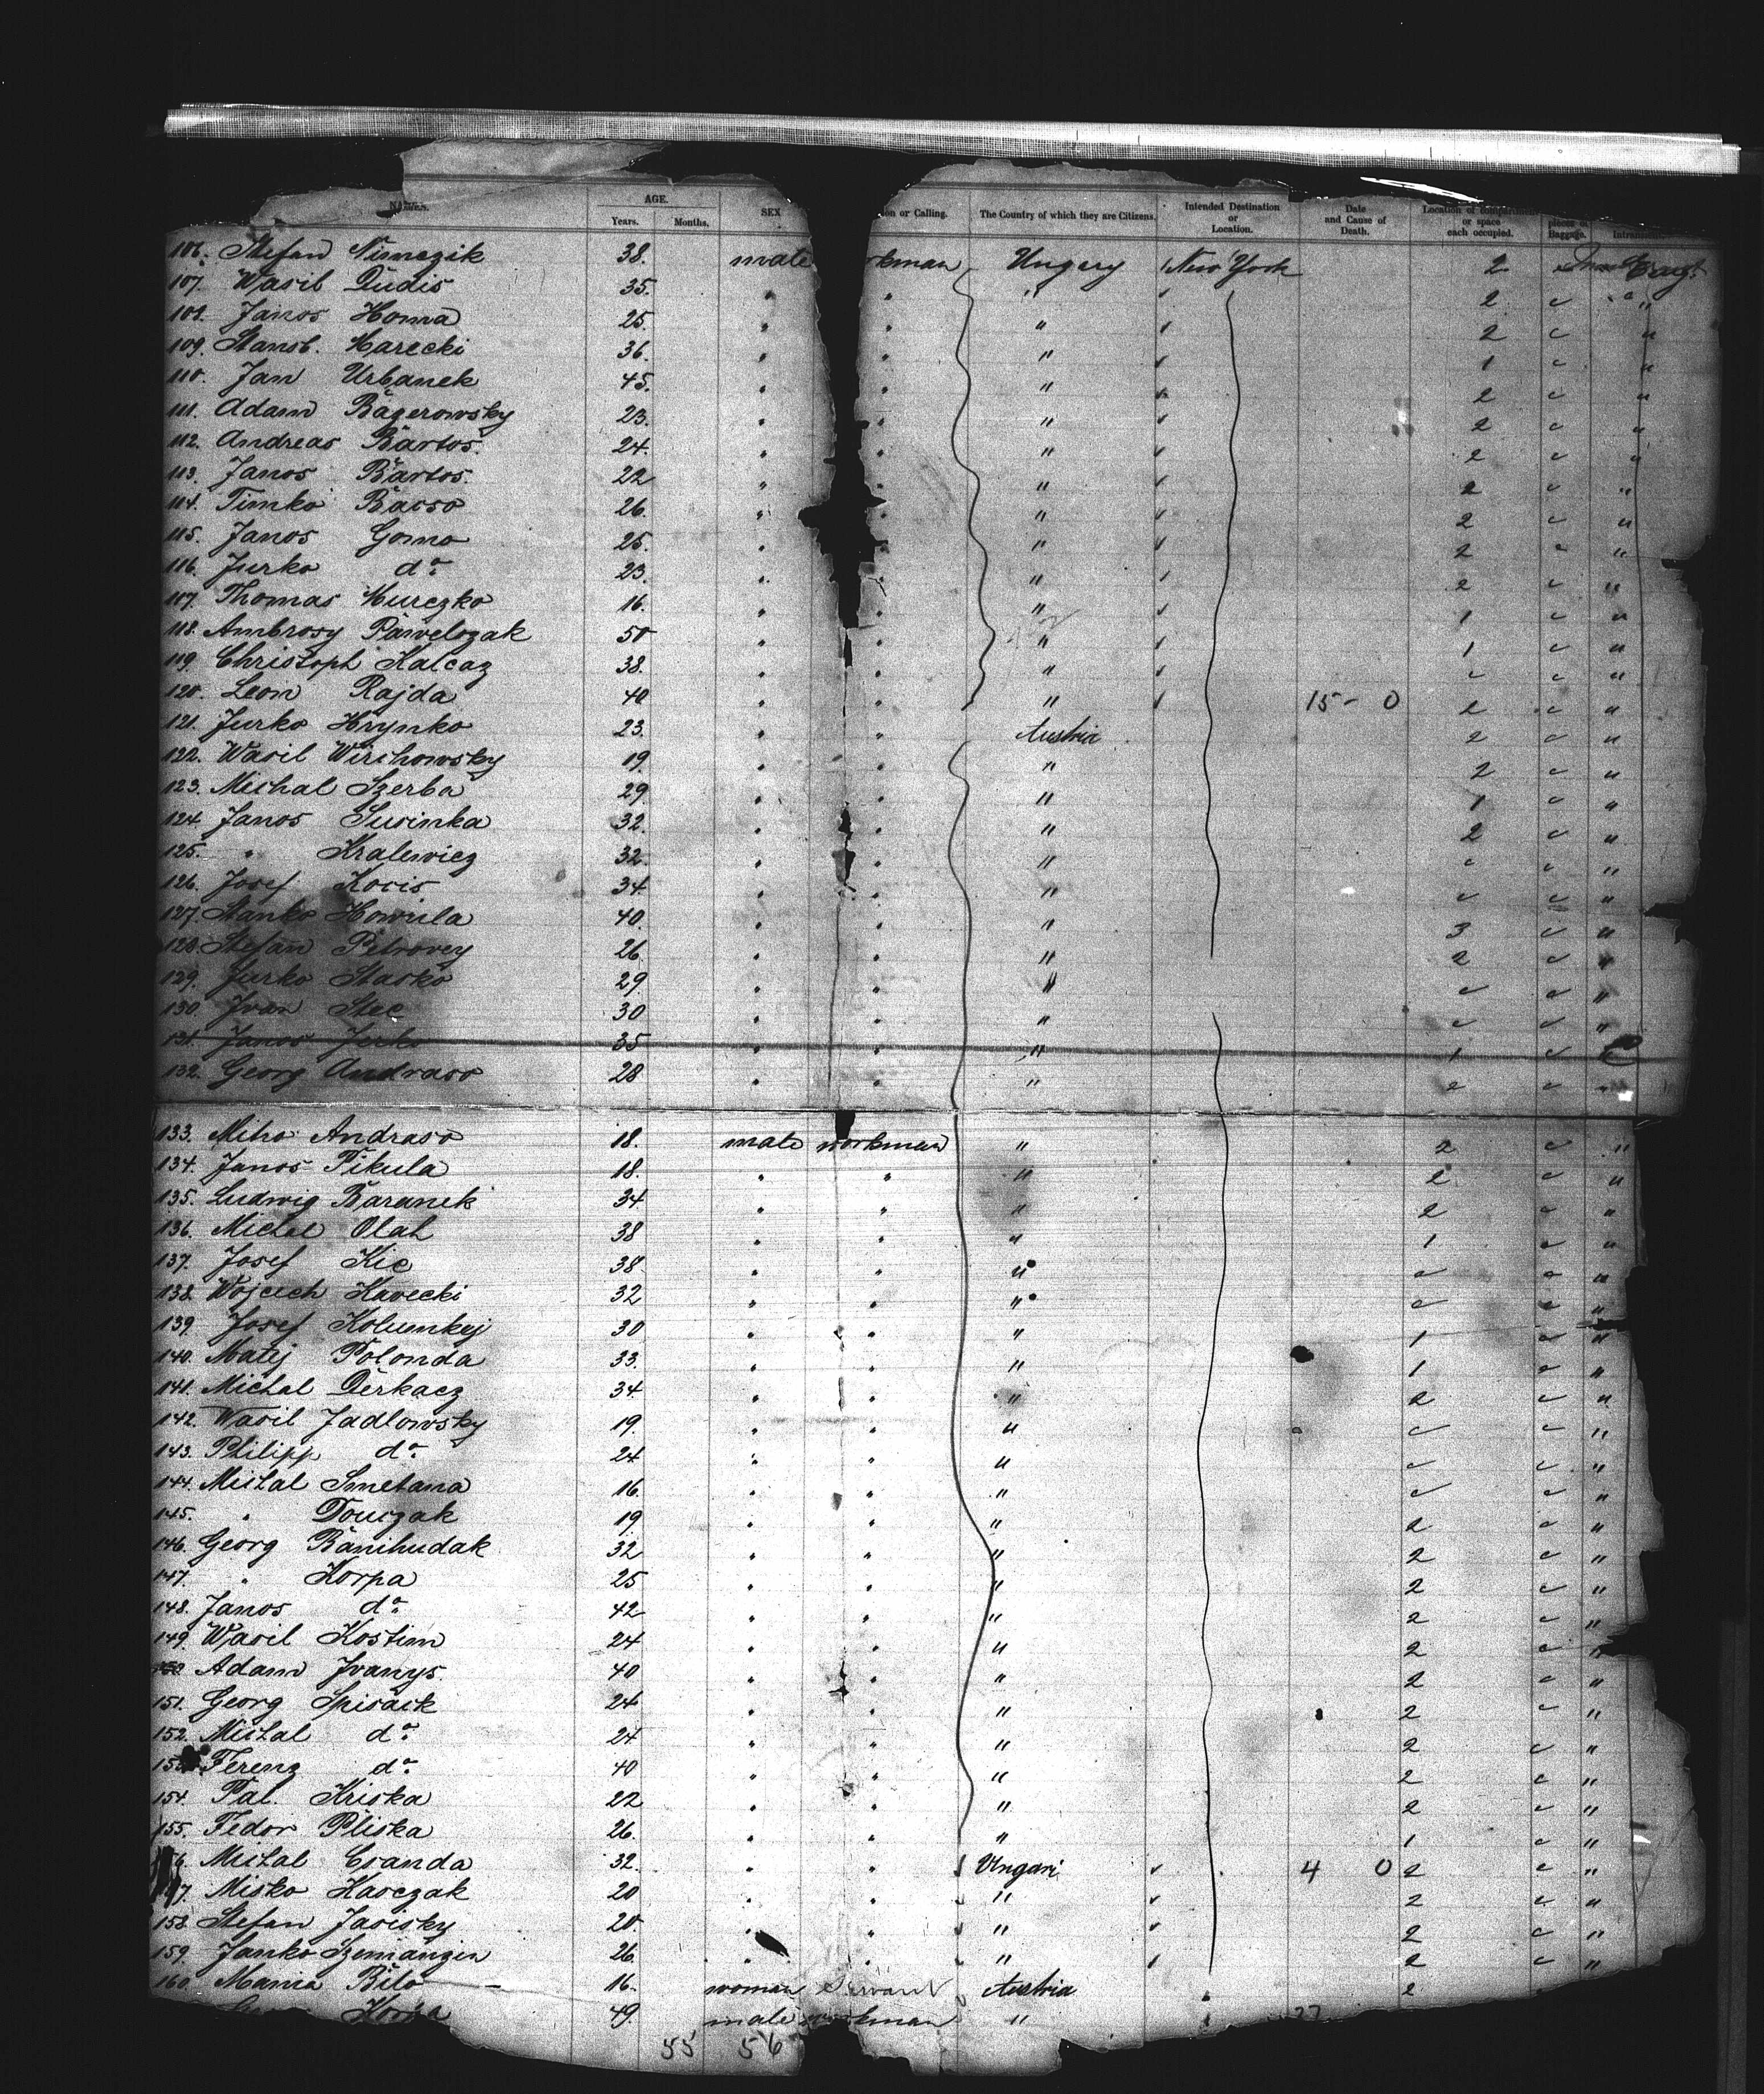 Names. AGE. SEX on or Calling. The Country of which they are Citizens. Intended Destination or Location. Date and Cause of Death. Location of or space each occupied. Baggage.
Years. Months.
106. Stefan Nimczik 38. male rkman Ungery New York 2
107. Wasil Dudis 35. " " " 2 "
108. Janos Homa 25. " " " 2 "
109. Stansb. Marecki 36. " " " 1 "
110. Jan Urbanek 45. " " " 2 "
111. Adam Bagerowsky 23. " " " 2 "
112. Andreas Bartos. 24. " " " 2 "
113. Janos Bartos. 22 " " " 2 "
114. Timko Basso 26. " " " 2 "
115. Janos Gomo 25. " " " 2 "
116. Jurko do 23. " " " 2 "
117. Thomas Murczko 16. " " " 1 "
118. Ambrosy Pawelczak 50 " " " 1 "
119. Christoph Kalcaz 38. " " " "
120. Leon Rajda 40 " " " 15 - 0 2 "
121. Jurko Hrynko 23. " " Austria 2 "
122. Wasil Wirchowsky 19. " " " 2 "
123. Michal Szerba 29. " " " 1 "
124. Janos Suvinka 32. " " " 2 "
125. " Kralewicz 32. " " " "
126. Josef Kocis 34. " " " "
127. Stanko Howula 40. " " " 3 "
128. Stefan Petrovey 26. " " " 2 "
129. Jurko Stasko 29. " " " "
130. Ivan Stec 30 " " " "
131. Janos Jerko 35 " " " 1
132. Georg Andraso 28 " " " 2 "
133. Miho Andraso 18. male workman " 2 "
134. Janos Pikula 18. " " " 2 "
135. Ludwig Baranek 34 " " " 2 "
136. Michal Olah 38 " " " 1 "
137. Josef Kic 38. " " " "
138. Wojcech Kavecki 32 " " " "
139. Josef Kolumkej 30 " " " 1 "
140. Matej Polonda 33. " " " 1 "
141. Michal Derkacz 34 " " " 2 "
142. Wasil Jadlowsky 19. " " " "
143. Philipp do 24 " " " "
144. Michal Smetana 16. " " " "
145. " Douczak 19 " " " 2 "
146. Georg Banihudak 32 " " " 2 "
147. " Korpa 25 " " " 2 "
148. Janos do 42 " " " 2 "
149. Wasil Kostim 24 " " " 2 "
Adam Ivanys. 40 " " " 2 "
151. Georg Spisack 24 " " " 2 "
152. Michal do 24 " " " 2 "
15 Ferenz do 40 " " " 2 "
154. Pal. Kriska 22 " " " 2 "
155. Fedor Pliska 26. " " " 1 "
6. Michal Csanda 32. " " Ungari 4 0 2 "
7. Misko Kasczak 20 " " " 2 "
158. Stefan Jacisky 20. " " " 2 "
159. Janko Szemanzin 26. " " " 2 "
160. Maria Bilo 16. woman Servant Austria 2
Korpa 49. male workman "
55 56